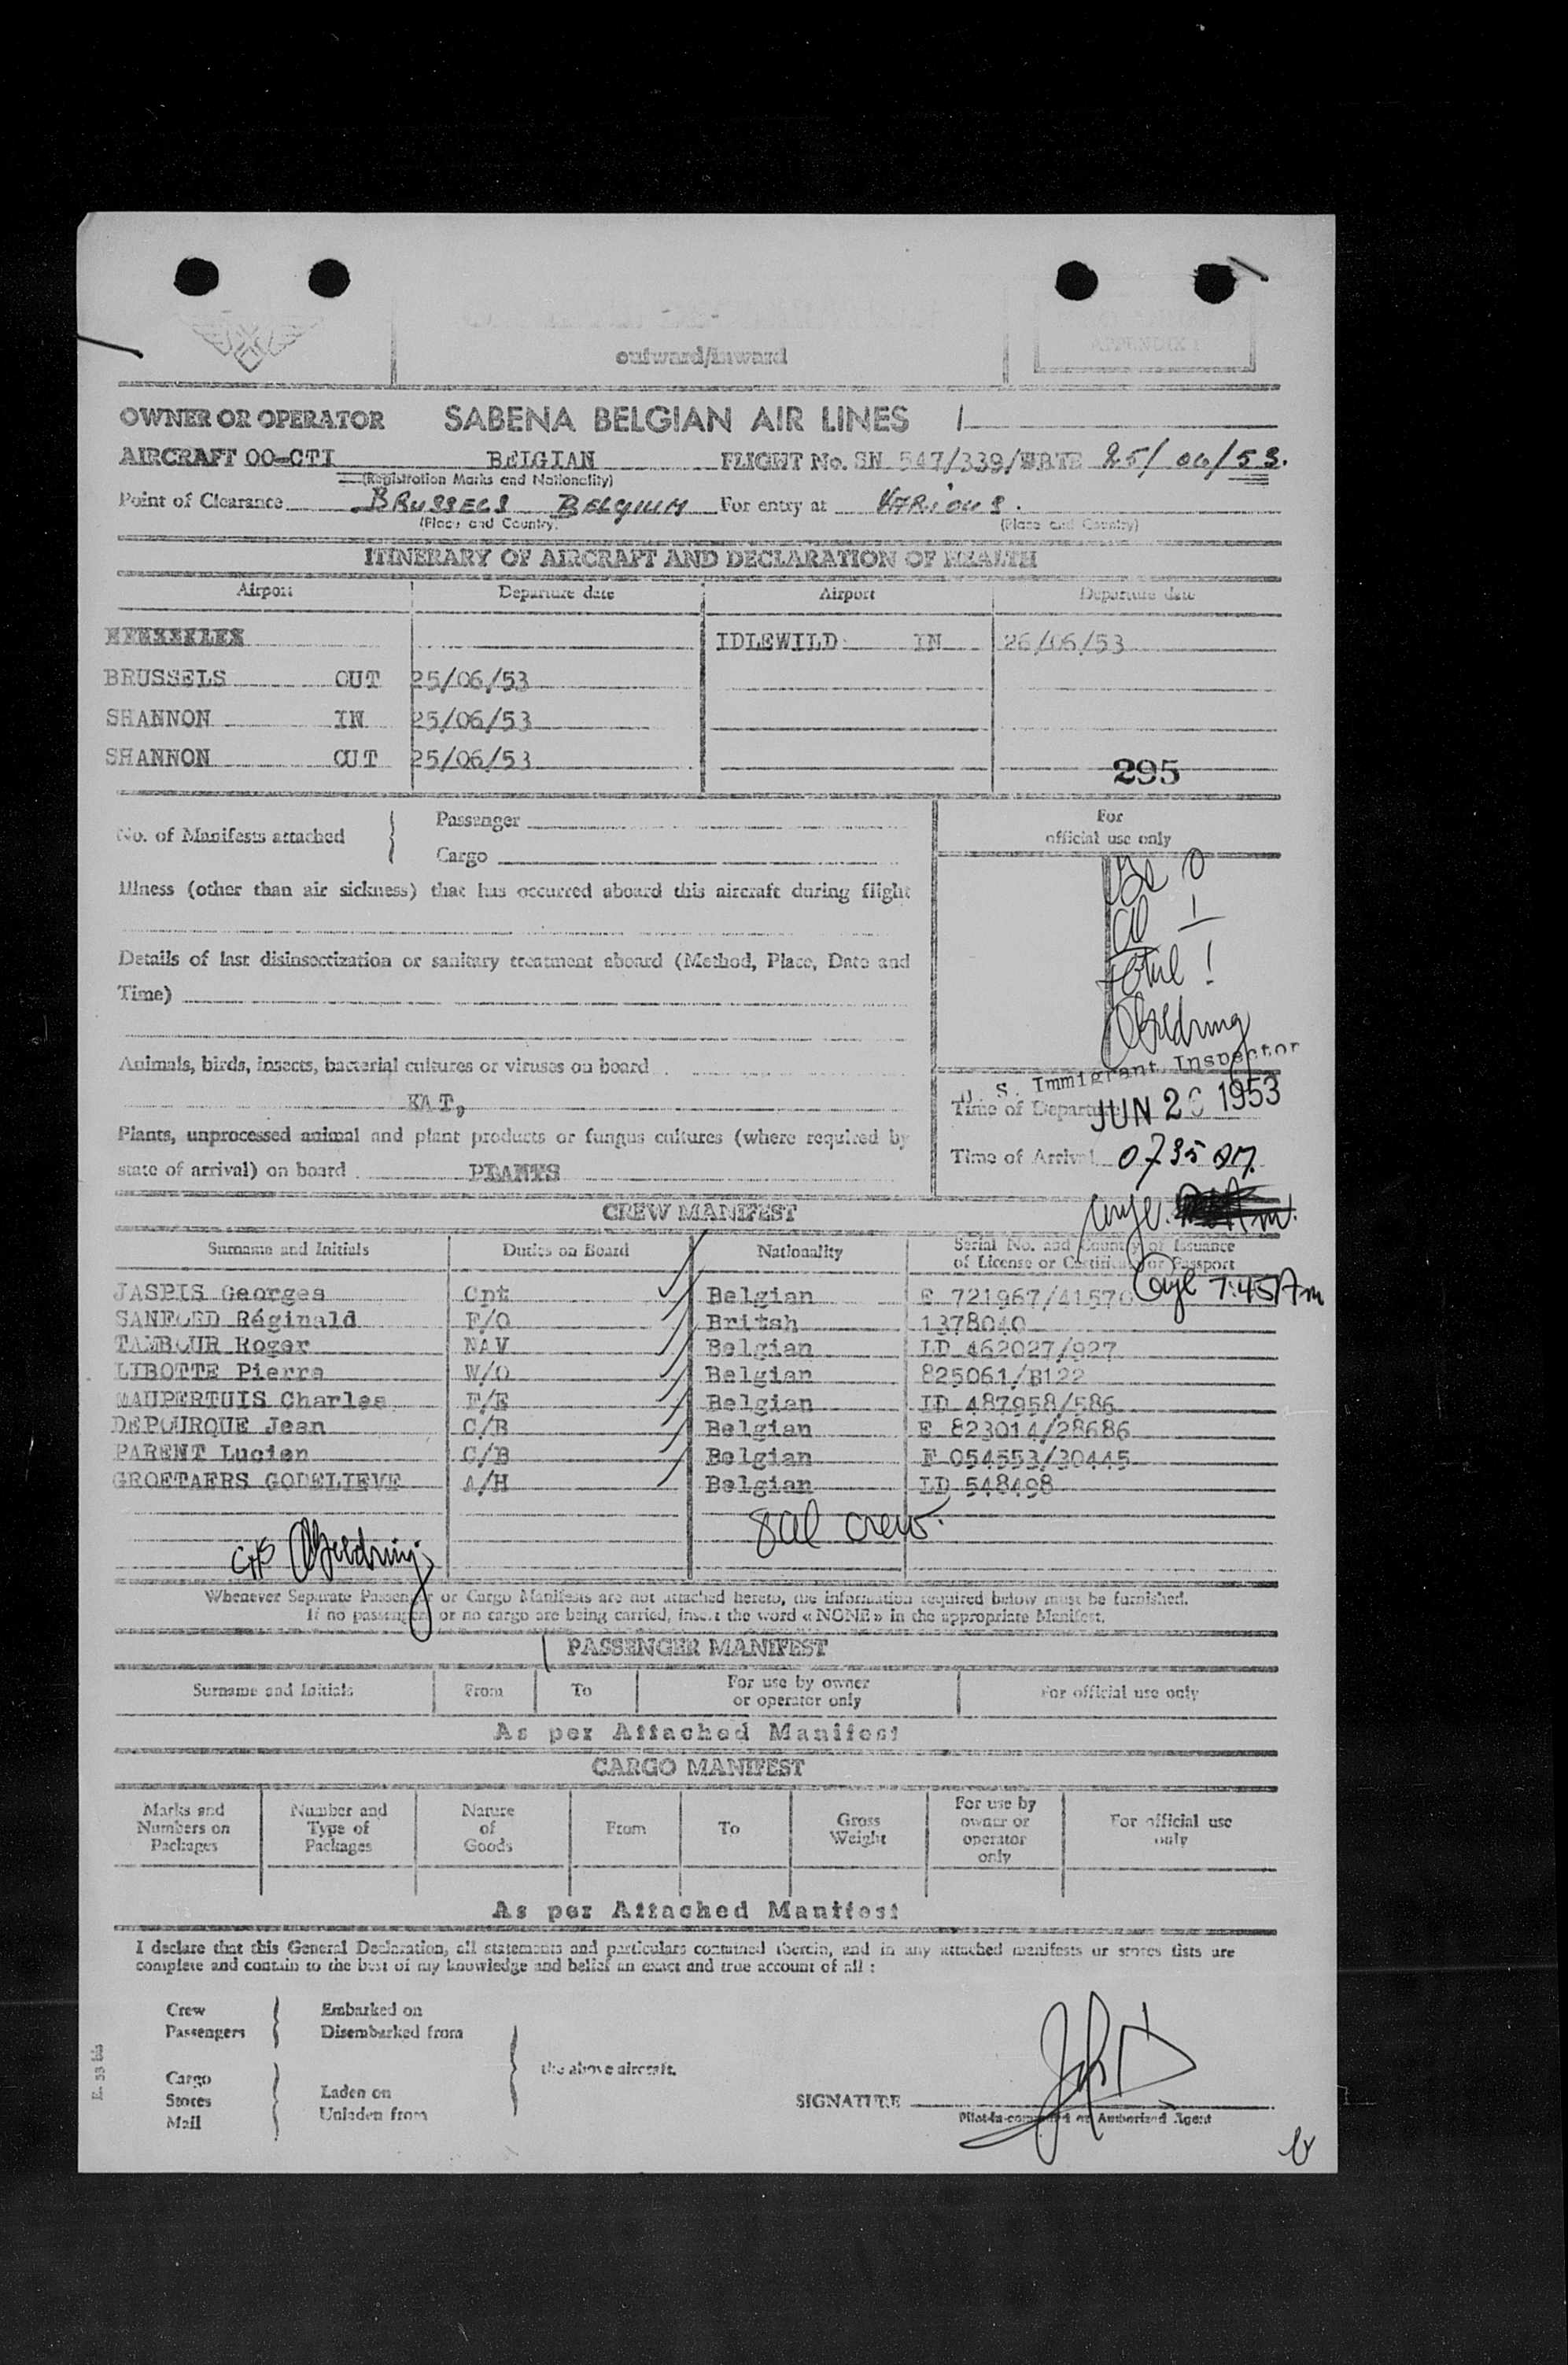 outward/inward
APPENDIX I
OWNER OR OPERATOR SABENA BELGIAN AIR LINES
AIRCRAFT OO-CTI BELGIAN FLIGHT No. SN 547/339/ 25/06/53.
(Registration Marks and Nationality)
Point of Clearance BRUSSELS BELGIUM For entry at VARIOUS.
(Place and Country) (Place and Country)
ITINERARY OF AIRCRAFT AND DECLARATION OF HEALTH
Airport Departure date Airport Departure date
IDLEWILD IN 26/06/53
BRUSSELS OUT 25/06/53
SHANNON IN 25/06/53
SHANNON OUT 25/06/53
295
No. of Manifests attached { Passenger
Cargo
For
official use only
Illness (other than air sickness) that has occurred aboard this aircraft during flight
Details of last disinsectization or sanitary treatment aboard (Method, Place, Date and
Time)
0
1
Total 1
Animals, birds, insects, bacterial cultures or viruses on board
U. S. Immigrant Inspector
Time of Departure JUN 26 1953
Plants, unprocessed animal and plant products or fungus cultures (where required by
state of arrival) on board PLANTS
Time of Arrival 0735
CREW MANIFEST
Surname and Initials Duties on Board Nationality Serial No. and Country of Issuance
of License or Certificate or Passport
7:45 Am
JASPIS Georges Cpt Belgian E 721967/41570
SANFORD Réginald F/O Britsh 1378040
TAMBOUR Roger NAV Belgian LD 462027/927
LIBOTTE Pierre W/O Belgian 825061/B122
MAUPERTUIS Charles F/E Belgian ID 487958/586
DEPOURQUE Jean C/B Belgian E 823014/28686
PARENT Lucien C/B Belgian F 054553/30445
GROETAERS GODELIEVE A/H Belgian LD 548498
8 al crew.
Whenever Separate Passenger or Cargo Manifests are not attached hereto, the information required below must be furnished.
If no passengers or no cargo are being carried, insert the word «NONE» in the appropriate Manifest.
PASSENGER MANIFEST
Surname and Initials From To For use by owner
or operator only For official use only
As per Attached Manifest
CARGO MANIFEST
Marks and
Numbers on
Packages
Number and
Type of
Packages
Nature
of
Goods
From
To
Gross
Weight
For use by
owner or
operator
only
For official use
only
As per Attached Manifest
I declare that this General Declaration, all statements and particulars contained therein, and in any attached manifests or stores lists are
complete and contain to the best of my knowledge and belief an exact and true account of all :
Crew
Passengers
Embarked on
Disembarked from
Cargo
Stores
Mail
Laden on
Unladen from
the above aircraft.
SIGNATURE
Pilot-in-command or Authorized Agent
E. 53 bis